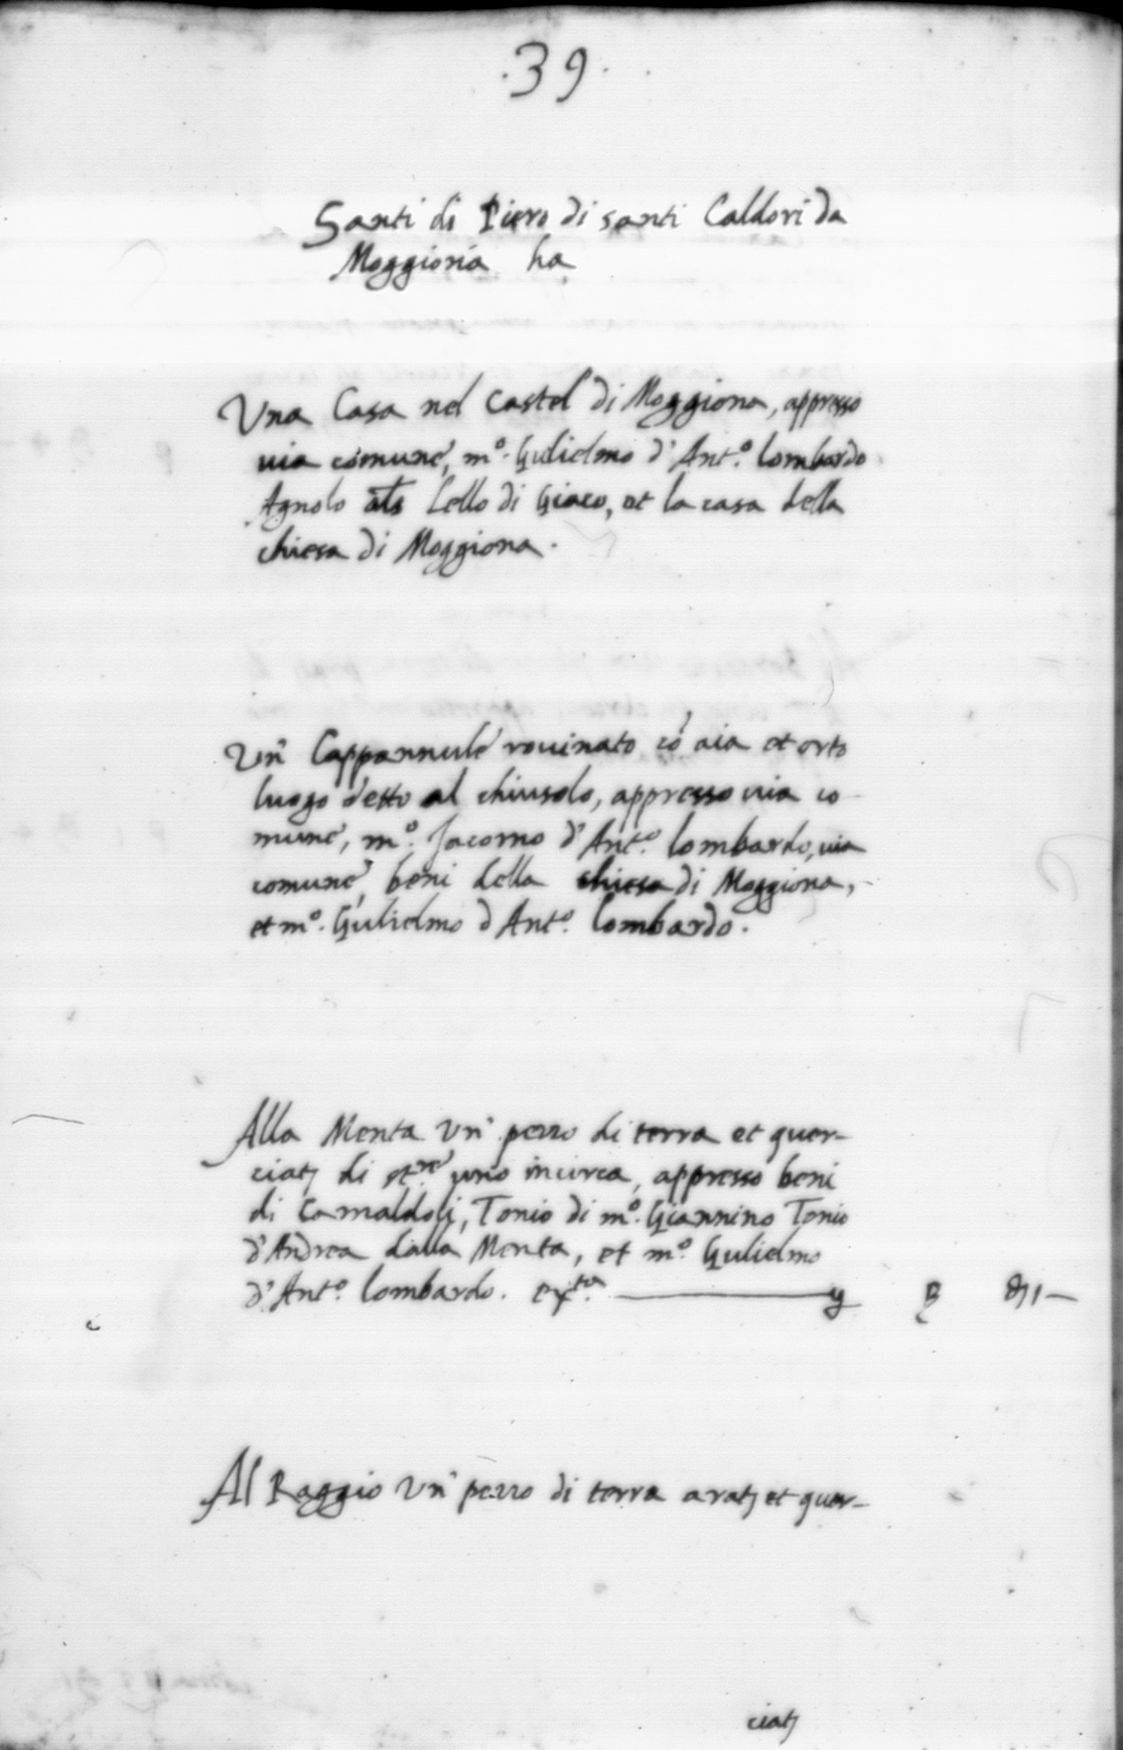 .39.
Santi di Piero di santi Caldori da
Moggiona ha
Una Casa nel Castel di Moggiona, appresso
via comune, m.º Gulielmo d'Ant.º lombardo
Agnolo als Lello di Giaco, et la casa della
chiesa di Moggiona.
Un Cappannule rouinato cō aia et orto
luogo detto al chiusolo, appresso uia co-
mune, m.º Jacomo d'Ant.º lombardo, uia
comune, beni della chiesa di Moggiona,
et m.º Gulielmo d Ant.º lombardo.
Alla Menta Un pezzo di terra et quer-
ciatj di st.re uno incirca, appresso beni
di Camaldoli, Tonio di m.º Giannino Tonio
d'Andrea dalla Menta, et m.º Gulielmo
d'Ant.º lombardo. ext.a
Al Raggio Un pezzo di terra aratj et quer-
ciatj